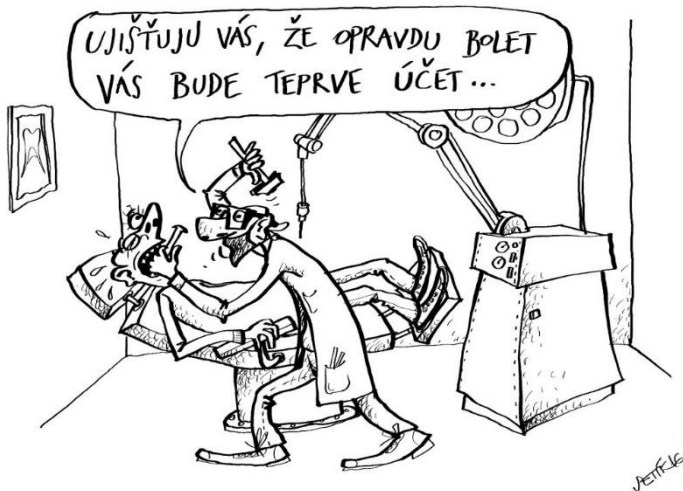 UJIŠŤUJU VÁS, ŽE OPRAVDU BOLET
VÁS BUDE TEPRVE ÚČET...